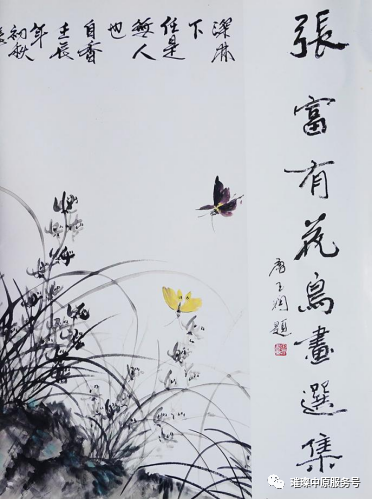 張富有花鳥畫選集
唐玉润題
深林
下
任是
無人
也
自香
壬辰
年
初秋
璀璨中原服务号